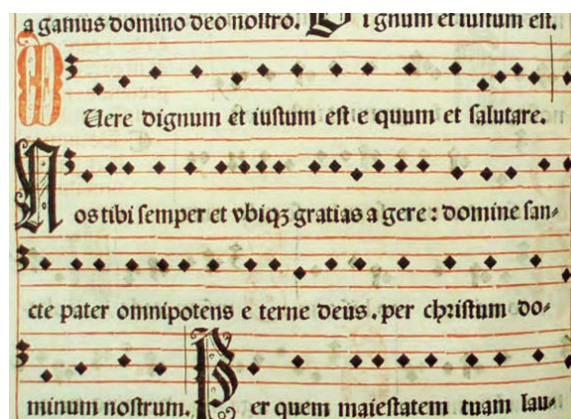 a gamus domino deo nostro. D i gnum et iustum est.
Uere dignum et iustum est e quum et salutare.
N os tibi semper et vbiqꝫ gratias a gere : domine san-
cte pater omnipotens e terne deus. per christum do-
minum nostrum. P er quem maiestatem tuam lau-